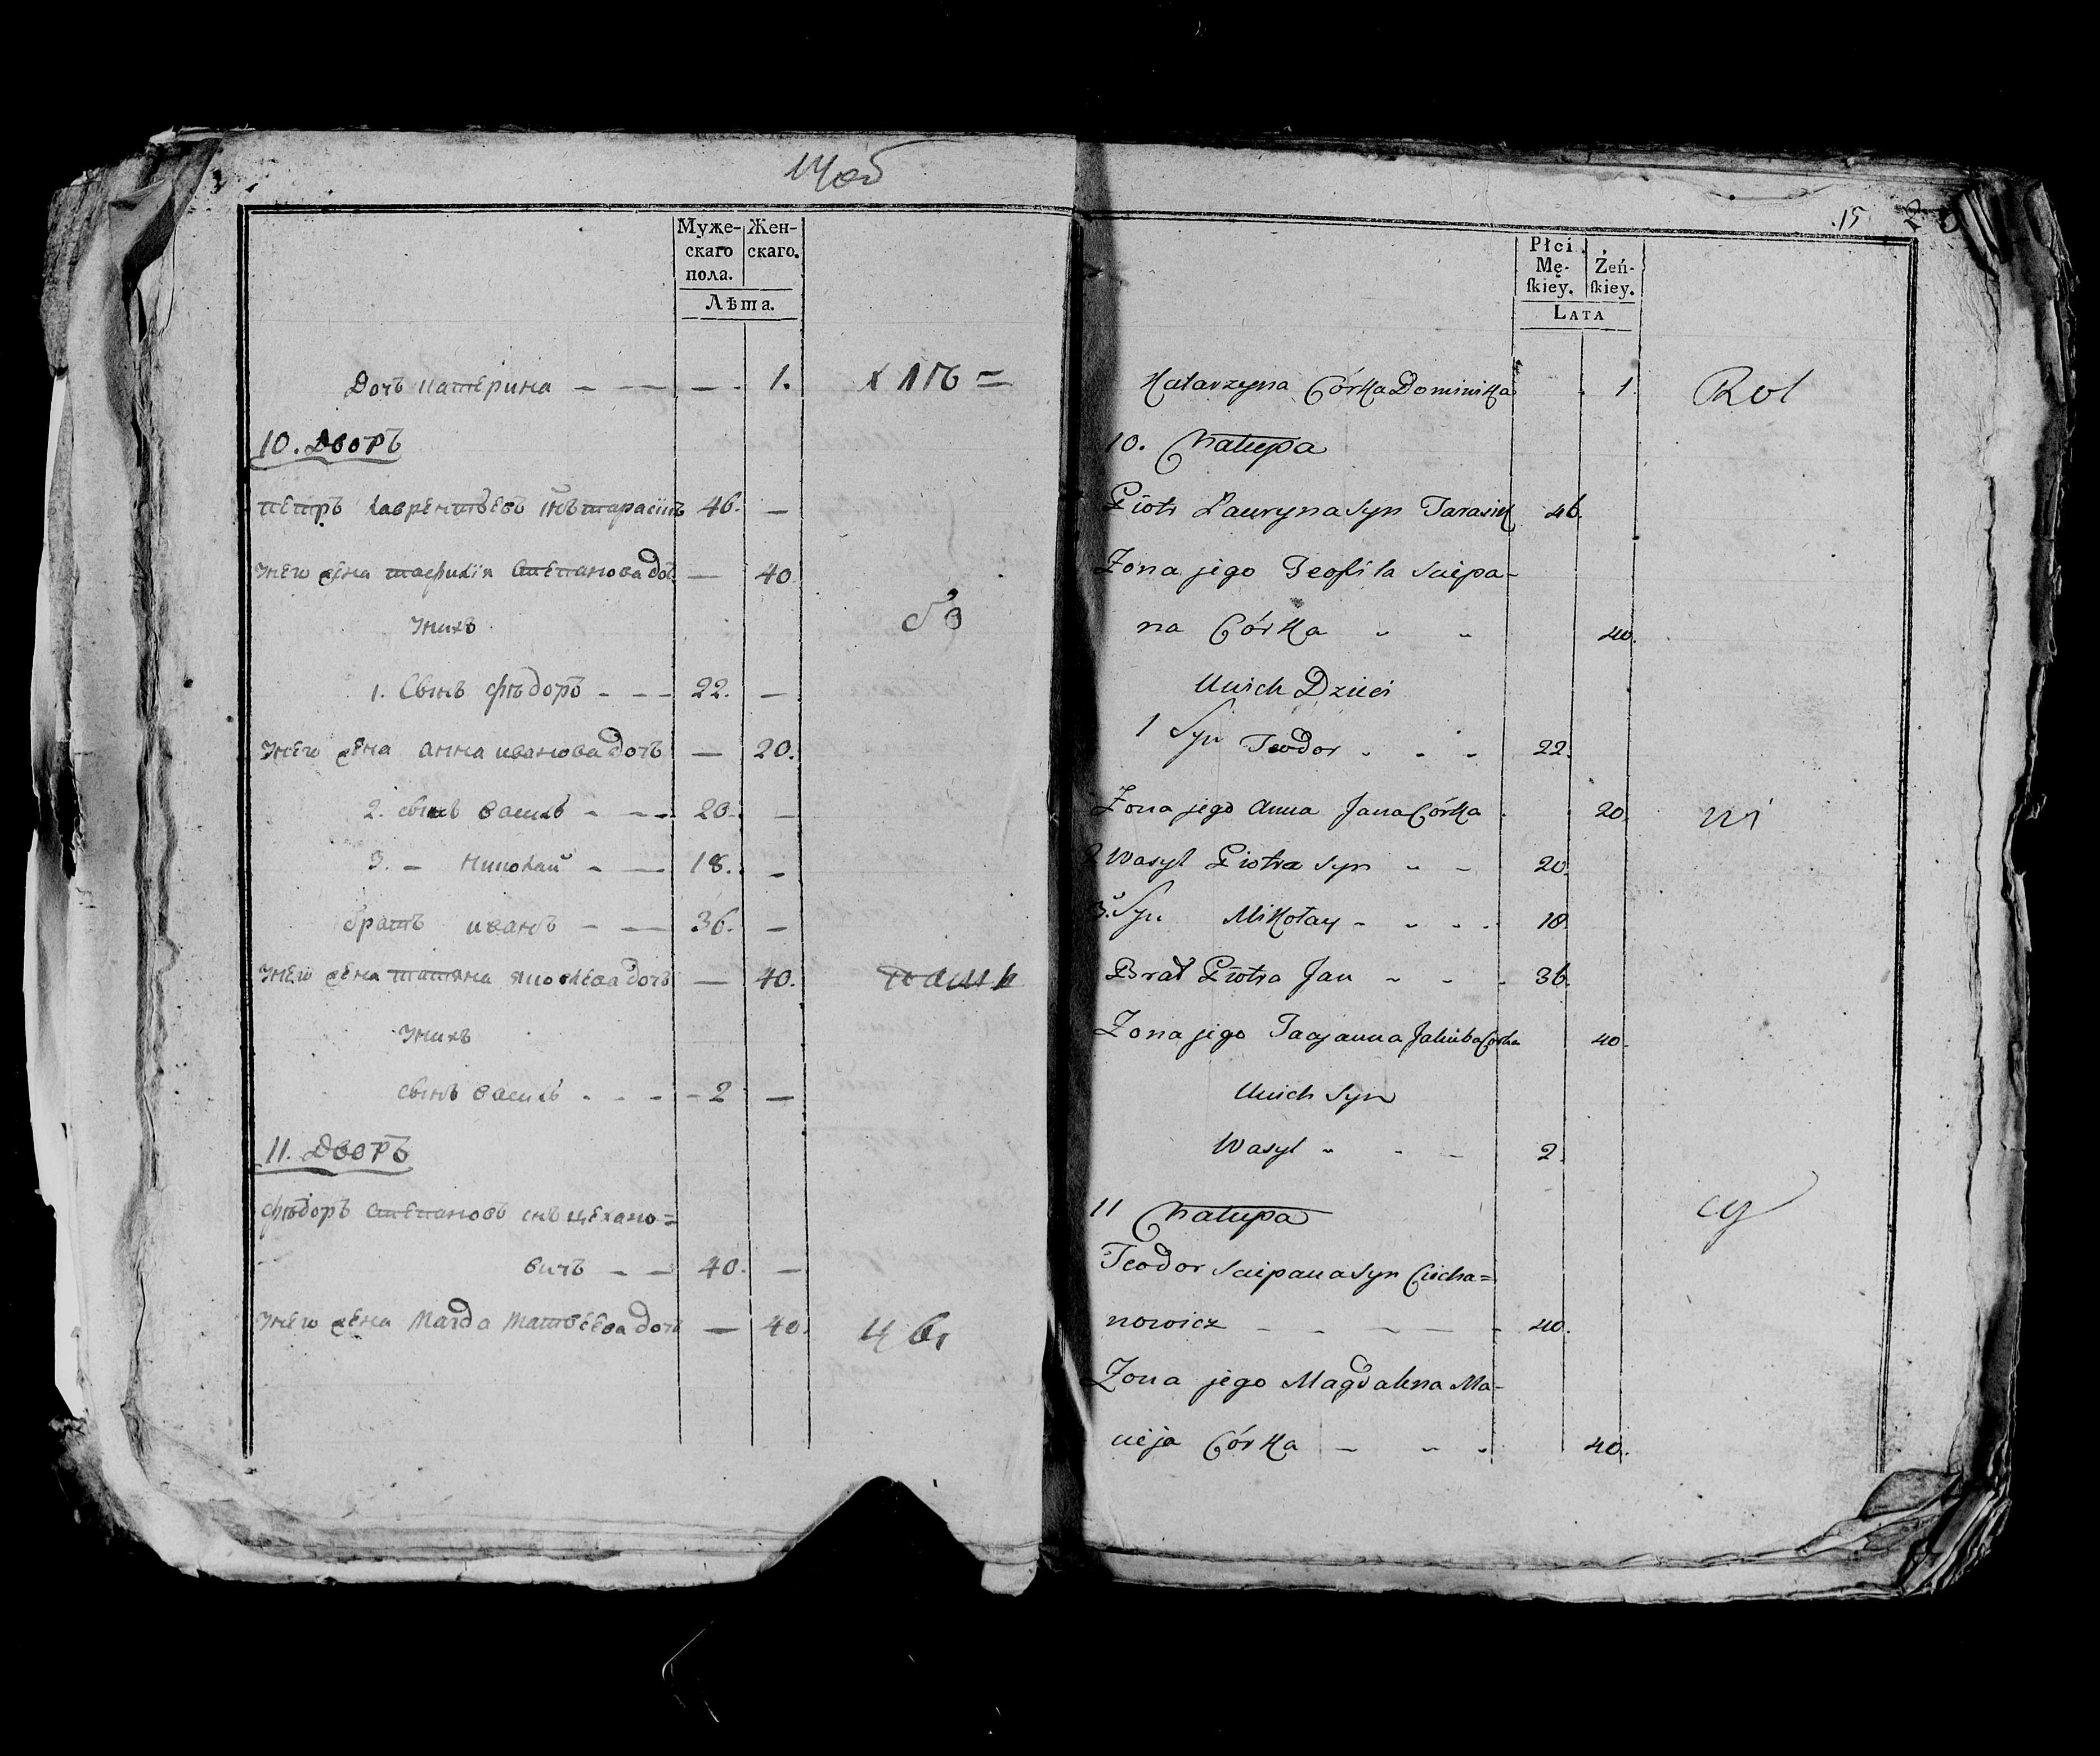 Муже-
скаго
пола.
Жен-
скаго.
Лѣта.
Дочь Катерина — — — — 1.
10. Дворъ
Петръ Лаврентьевъ снъ Тарасикъ 46. —
Унего жена Тофилія Степанова доч — 40
Унихъ
1. Сынъ Фѣдоръ - - - 22. —
Унего жена Анна Иванова дочь — 20.
2. сынъ Василь - - - 20. —
3. — Николай - — 18. -
братъ Иванъ - — 36. —
Унего жена Татяна Яковлева дочь — 40.
Унихъ
сынъ Василь - - - - 2 —
11. Дворъ
Фѣдоръ Степановъ снъ Цехано=
вичъ — — 40. —
Унего жена Магда Матвѣева дочь — 40.
15
Płci
Mę-
ſkiey.
Żeń-
ſkiey.
LATA
Katarzyna Córka Dominika 1
10. Chałupa
Piotr Lauryna Syn Tarasik 46.
Zona jego Teofila Sciepa-
na Córka 40.
Unich Dzieci
1 Syn Teodor - - - 22.
Zona jego Anna Jana Córka 20.
2 Wasyl Piotra Syn - - 20.
3. Syn Mikołay - - - - 18
Brat Piotra Jan - - - 36.
Zona jego Tacjanna Jakuba Córka 40.
Unich Syn
Wasyl - - - 2.
11 Chałupa
Teodor Sciepana Syn Ciecha=
nowicz — — — — - 40.
Zona jego Magdalena Ma-
cieja Córka — - - 40.